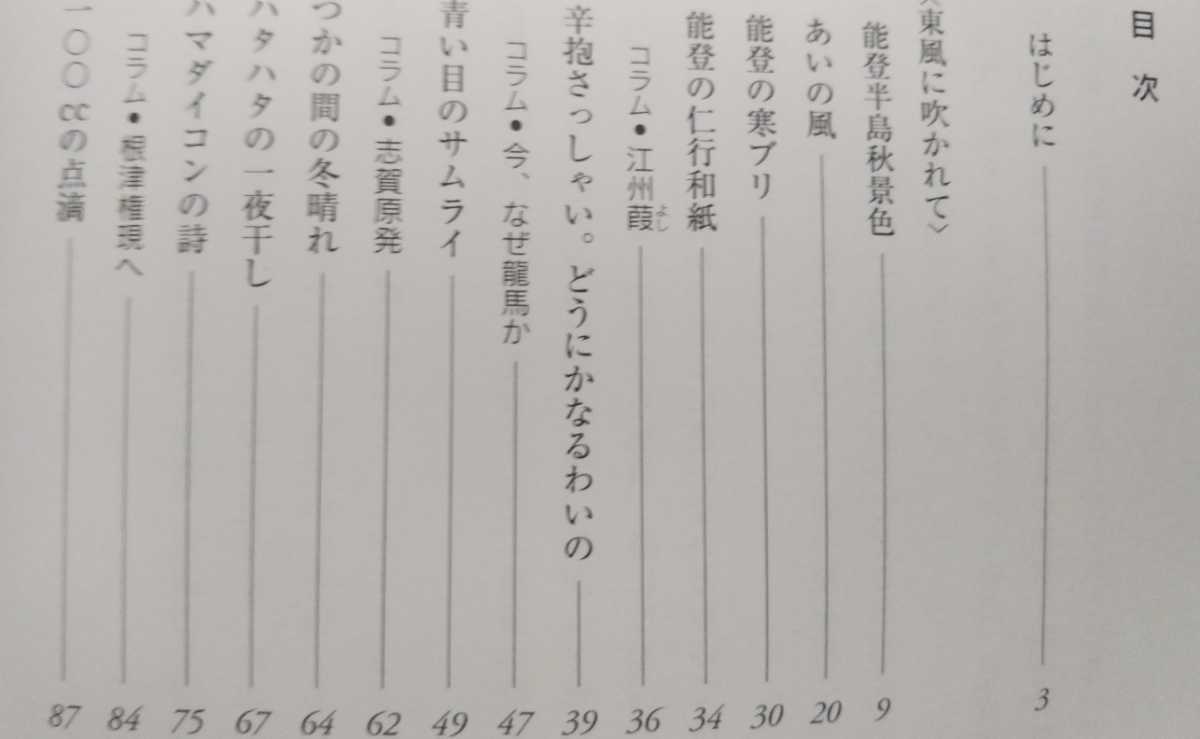 目次
はじめに 3
〈東風に吹かれて〉
能登半島秋景色 9
あいの風 20
能登の寒ブリ 30
能登の仁行和紙 34
コラム・江州葭 よし 36
辛抱さっしゃい。どうにかなるわいの 39
コラム・今、なぜ龍馬か 47
青い目のサムライ 49
コラム・志賀原発 62
つかの間の冬晴れ 64
ハタハタの一夜干し 67
ハマダイコンの詩 75
コラム・根津権現へ 84
一〇〇ccの点滴 87